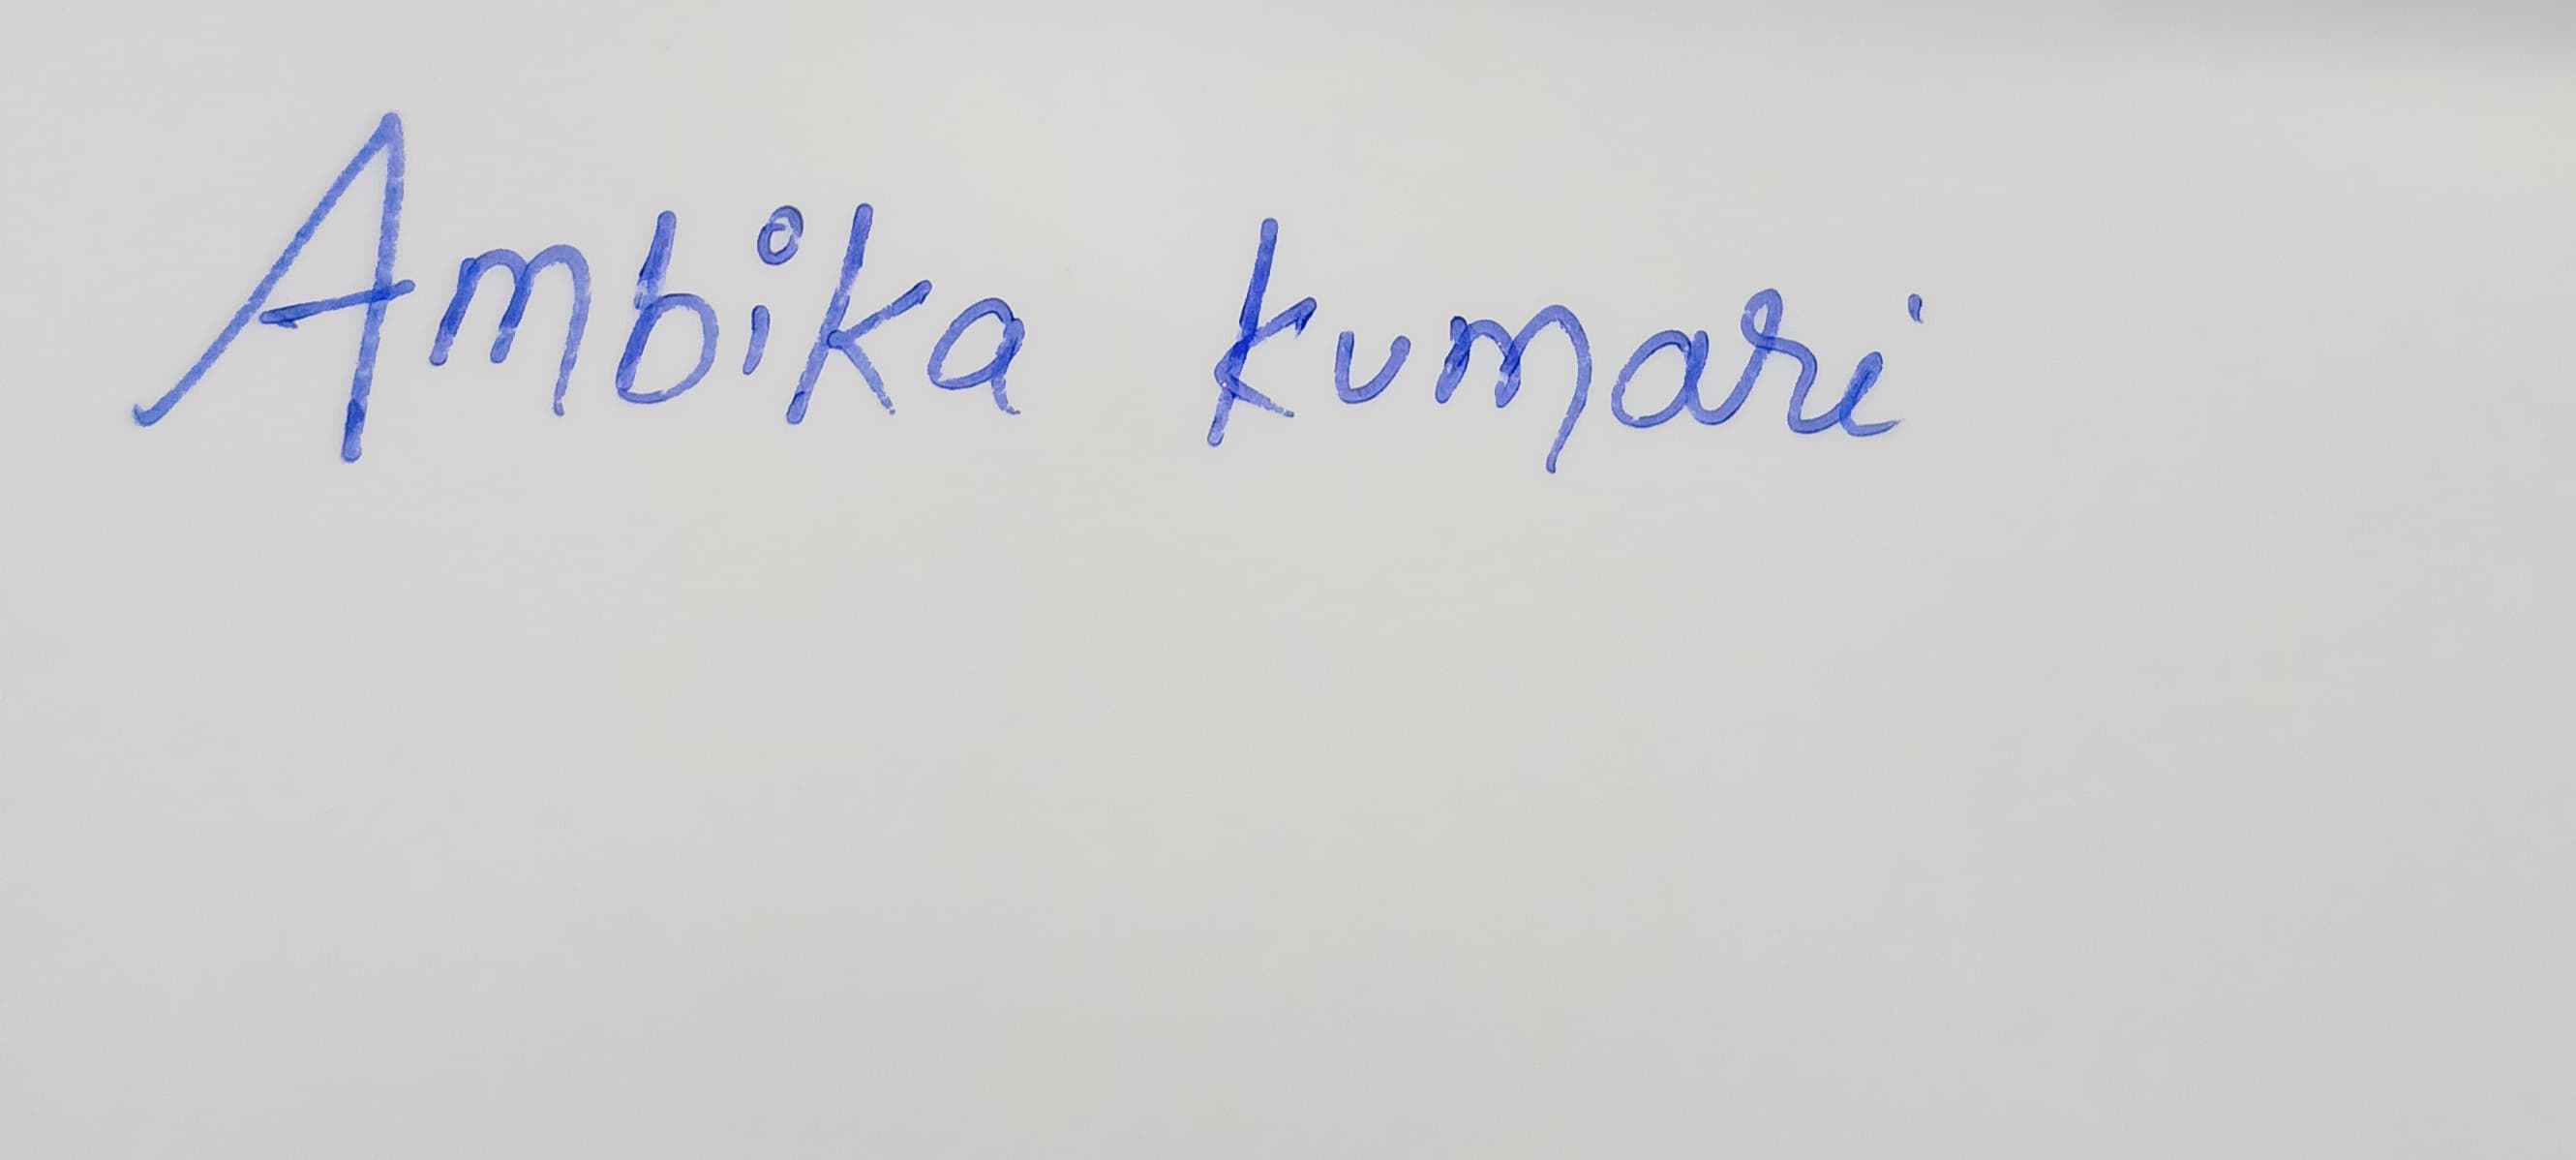 Ambika kumari